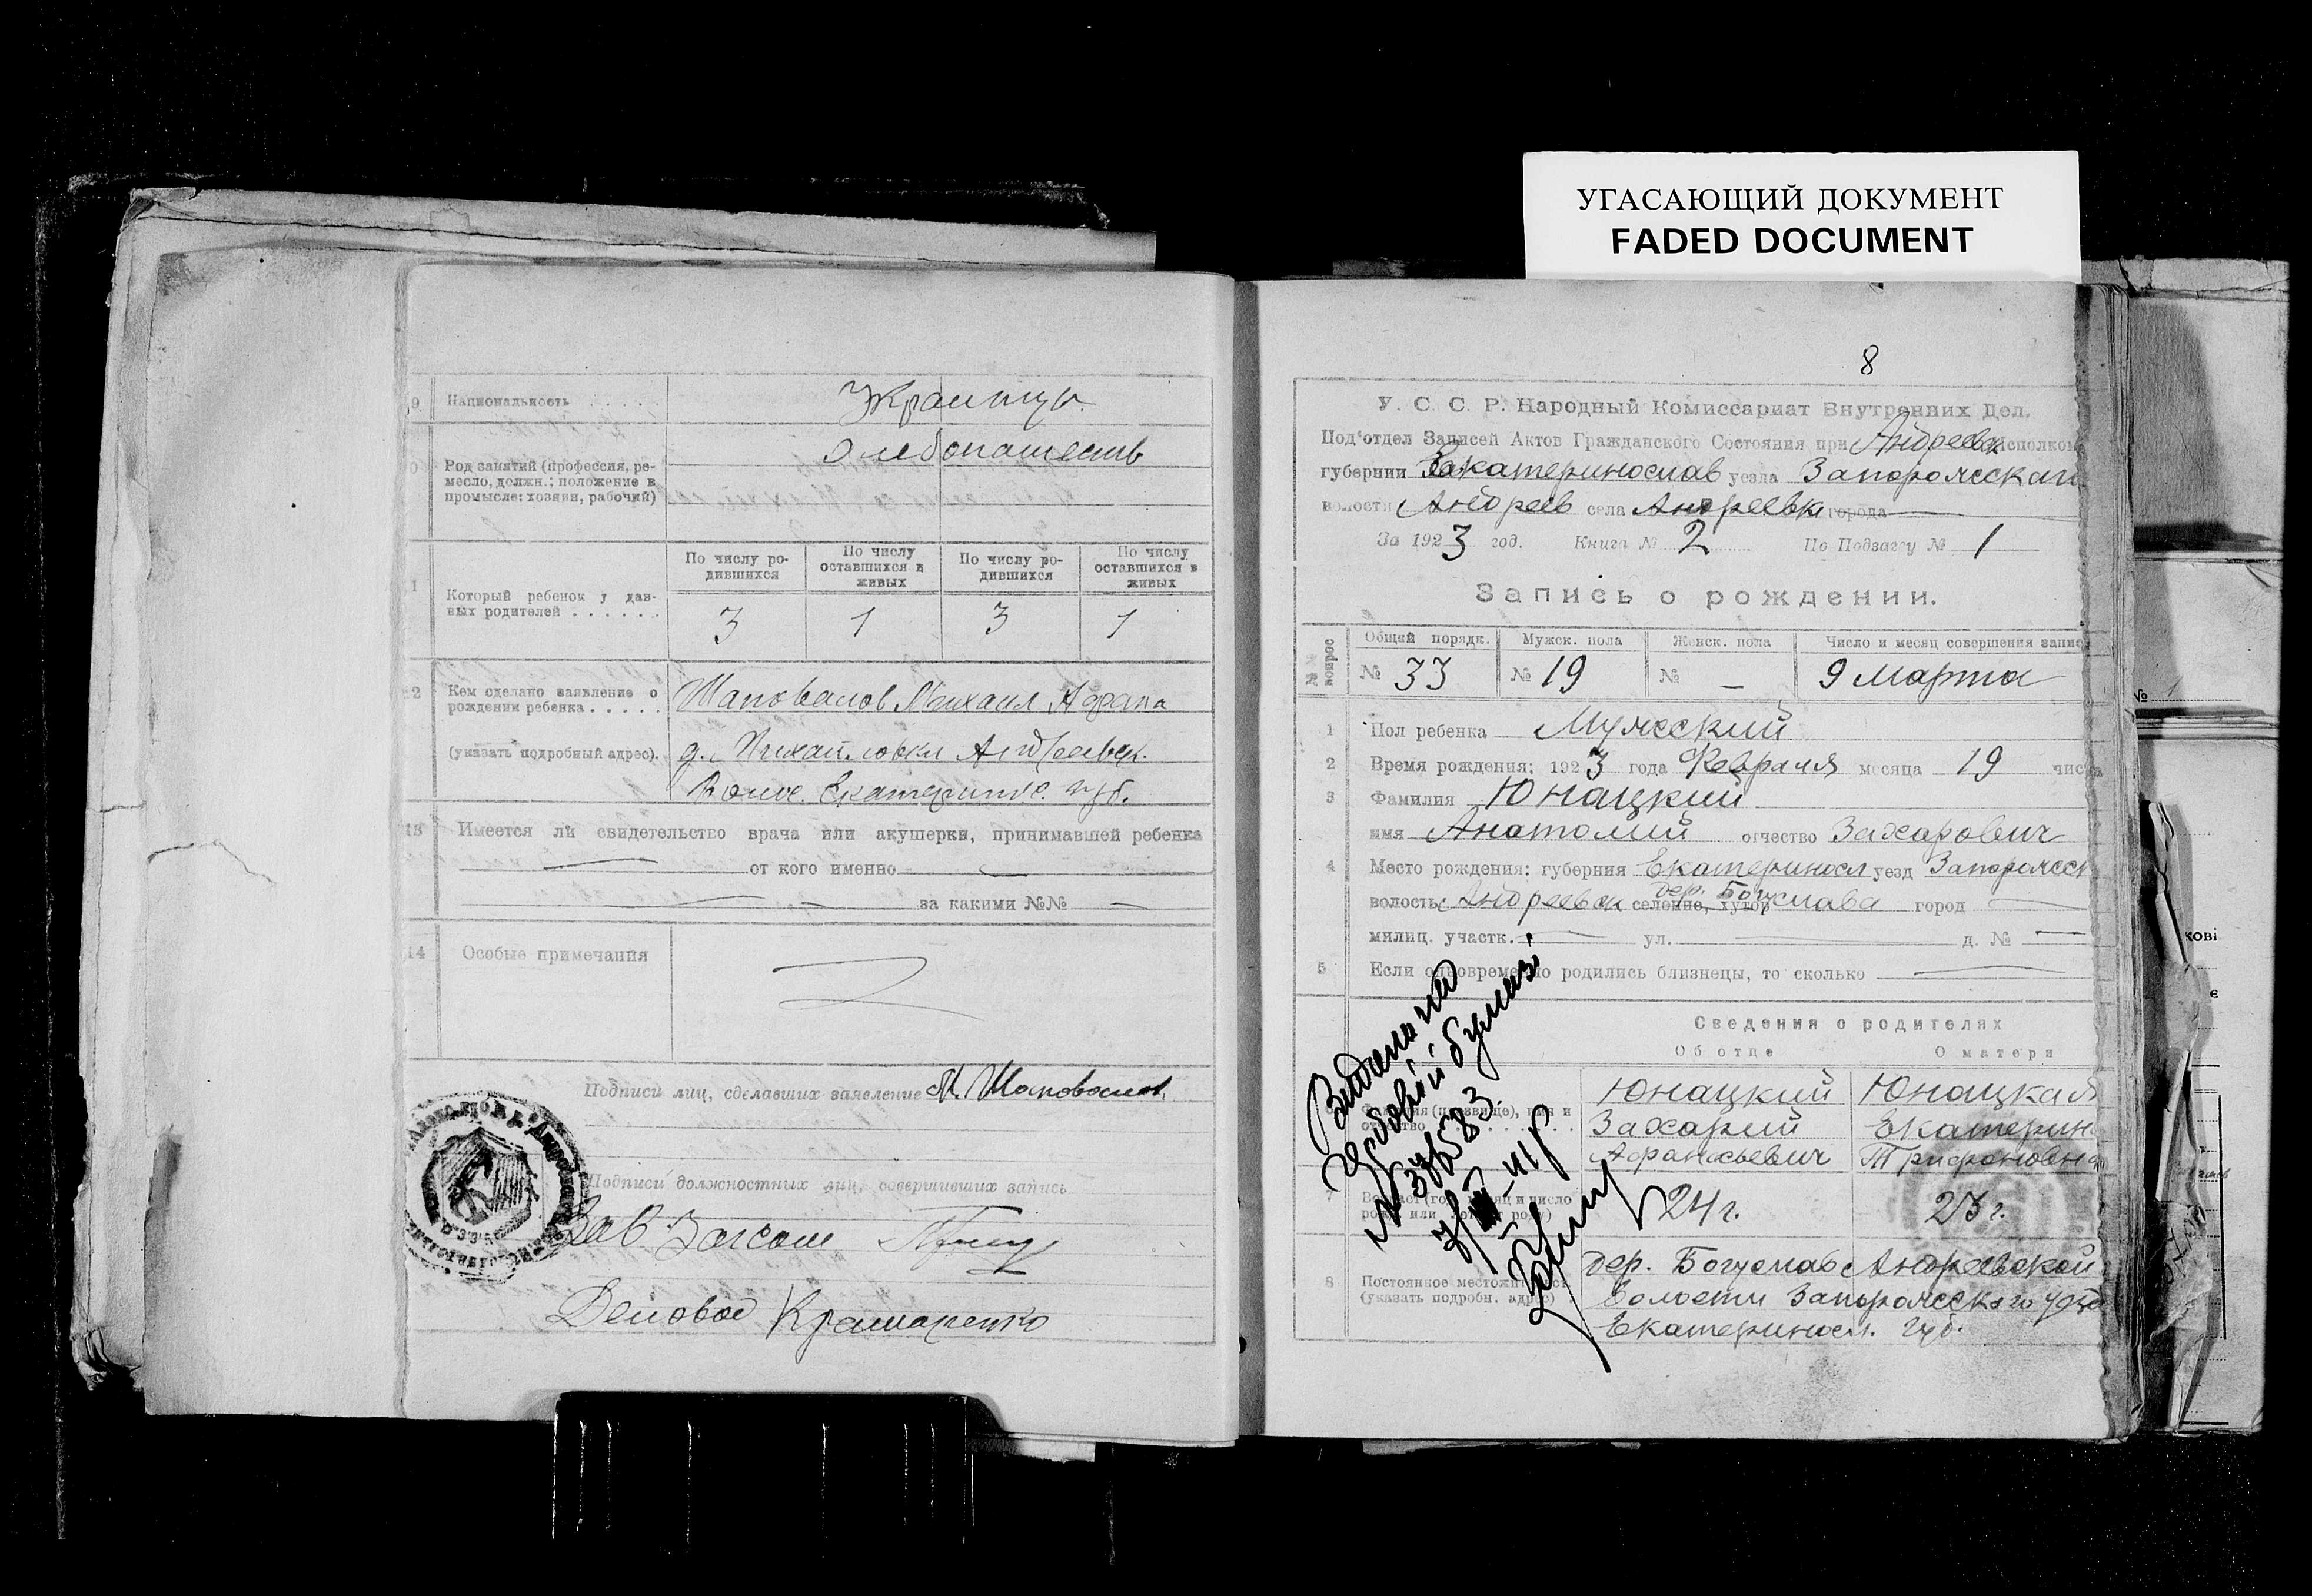 УГАСАЮЩИЙ ДОКУМЕНТ
FADED DOCUMENT
9 Национальность . . . . . Украинцы
Хлебопашест
Род занятий (профессия, ре-
месло, должн.; положение в
промысле: хозяин, рабочий)
По числу ро-
дившихся
По числу
оставшихся в
живых
По числу ро-
дившихся
По числу
оставшихся в
живых
1 Который ребенок у дан-
ных родителей . . . . . . 3 1 3 1
2 Кем сделано заявление о
рождении ребенка . . . . . Шаповалов Михаил
(указать подробный адрес). д. Михайловки Андреевск.
Волос. Екатеринос. губ.
13 Имеется ли свидетельство врача или акушерки, принимавшей ребенка
от кого именно
за какими №№
14 Особые примечания
Подписи лиц, сделавших заявление М. Шаповалов
Подписи должностных лиц, совершивших запись
Зав Загсом
Деловод Крамаренко
8
У. С. С. Р. Народный Комиссариат Внутренних Дел.
Под'отдел Записей Актов Гражданского Состояния при Андреевск Исполком
губернии Екатеринослав уезда Запорожская
волости Андреев села Андреевки города —
За 1923 год. Книга № 2 По Подзагсу № 1
Запись о рождении.
№№ вопрос
Общий порядк. Мужск. пола Женск. пола Число и месяц совершения запис
№ 33 № 19 № — 9 Марта
1 Пол ребенка Мужеский
2 Время рождения: 1923 года Февраля месяца 19 числ
3 Фамилия Юнацкий
имя Анатолий отчество Захарович
4 Место рождения: губерния Екатериносл уезд Запорожск
волость Андреевск селение, хутор дер. Богуслава город —
милиц. участк. — ул. — д. № —
5 Если одновременно родились близнецы, то сколько —
Сведения о родителях
Об отце О матери
Юнацкий Юнацкая
Захарий Екатерин
Афанасьевич Трифоновна
24 г. 23 г.
8 Постоянное местожит
(указать подробн. адрес)
дер. Богуслав Андреевской
волости Запорожского уезда
Екатериносл. губ.